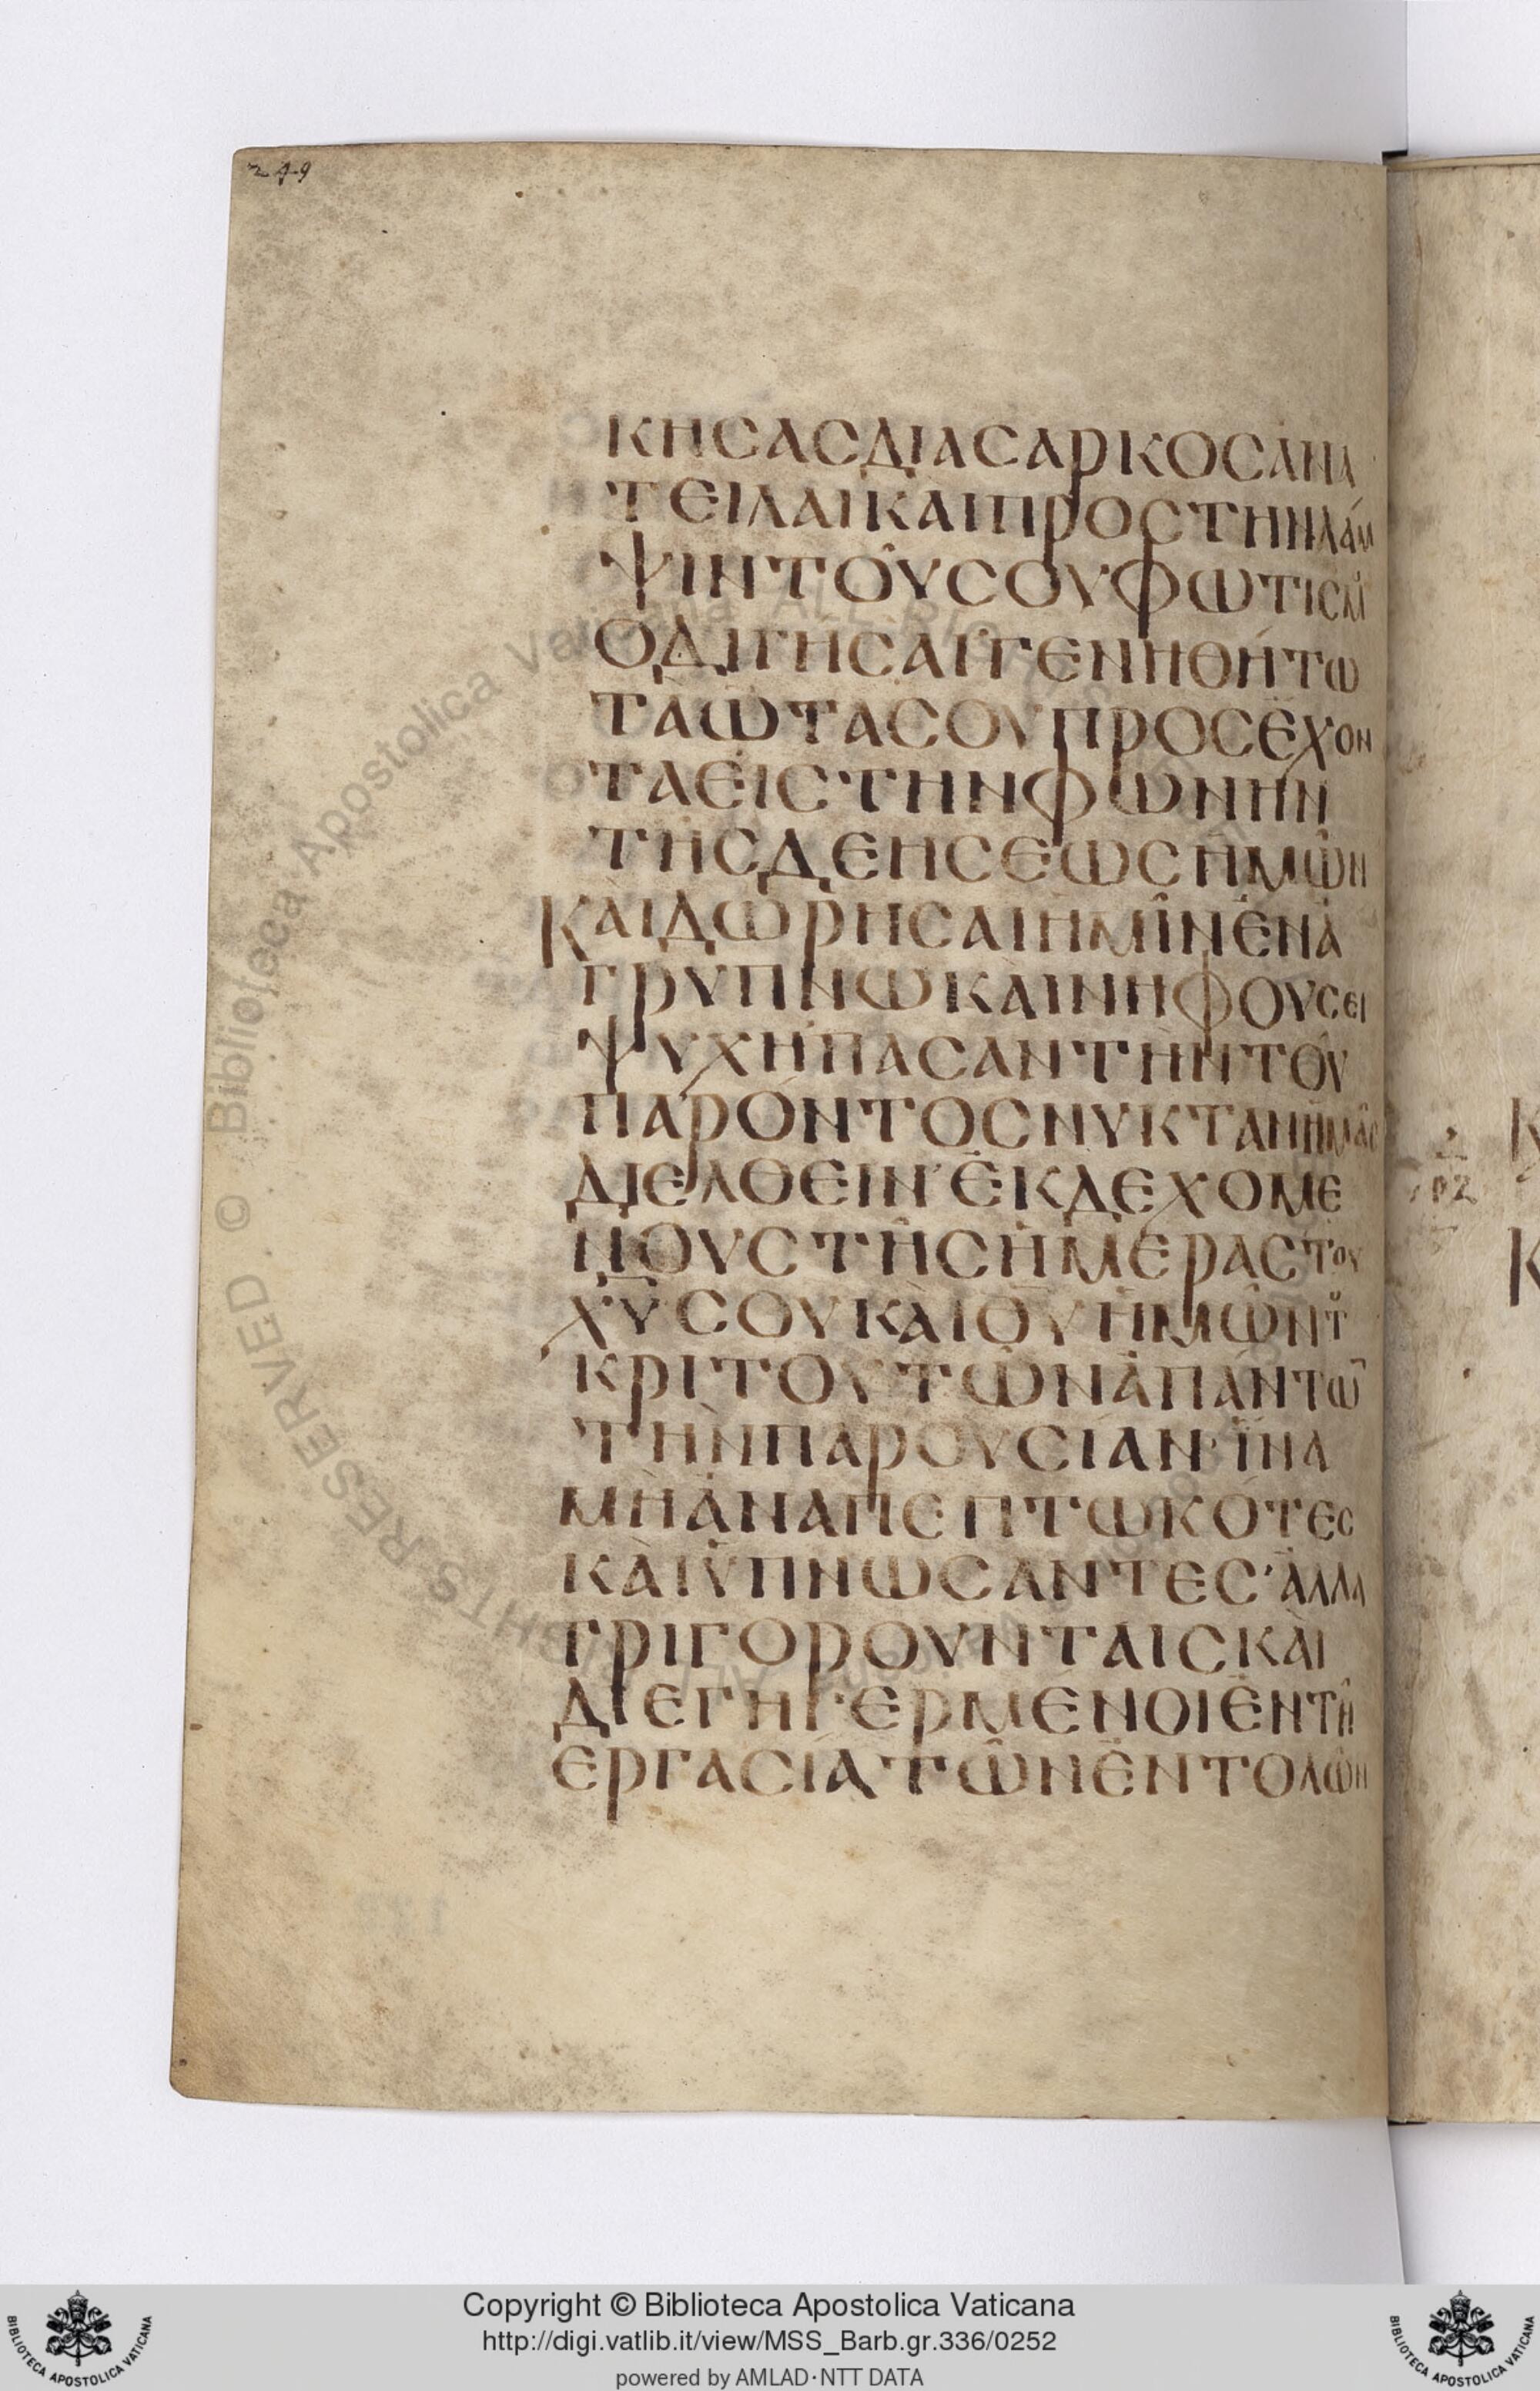 249
ΚΗCΑCΔΙΑCΑΡΚΟCἈΝΑ
ΤΕΙΛΑΙΚΑΙΠΡΟCΤΗΝΛΆΜ
ΨΙΝΤΟΥ͂CΟΥΦΩΤΙCΜ
ΟΔΙΓΗCΑΙ ΓΕΝΗΘΉΤΩ
ΤᾺὨΤΑCΟΥΠΡΟCΈΧΟΝ
ΤΑΕἸCΤΗΝΦΩΝΗΝ
ΤΗ͂CΔΕΗCΕΩCἩΜΩ͂Ν
ΚΑῚΔΩΡΗCΑΙἩΜΙ͂ΝἘΝἈ
ΓΡΥΠΝΩΚΑῚΝΗΦΟΥCΕΙ
ΨΥΧΗ ΠΑCΑΝΤῊΝΤΟΥ͂
ΠΑΡΌΝΤΟCΝΥΚΤΑΝΗΜΑ͂C
ΔΙΕΛΘΕΙΝ ἘΚΔΕΧΟΜΕ
ΝΟΥCΤΗ͂CἩΜΈΡΑCΤΟΥ
ΧΥ̅CΟΥΚΑῚΘΥ̅ἩΜΩ͂ΝΤȢ
ΚΡΙΤΟΥ͂ΤΩ͂ΝἈΠΆΝΤΩ̅
ΤῊΝΠΑΡΟΥCΊΑΝ·ἽΝΑ
ΜΗἈΝΑΠΕΠΤΩΚΌΤΕC
ΚΑῚὙΠΝΩCΑΝΤΕC·ἈΛΛΑ
ΓΡΙΓΟΡΟΥΝΤΑΙCΚΑῚ
ΔΙΕΓΗΓΕΡΜΕΝΟΙἘΝΤΗ͂
ΕΡΓΑCΊΑΤΩ͂ΝἘΝΤΟΛΩ͂Ν
Copyright © Biblioteca Apostolica Vaticana
http://digi.vatlib.it/view/MSS_Barb.gr.336/0252
powered by AMLAD·NTT DATA